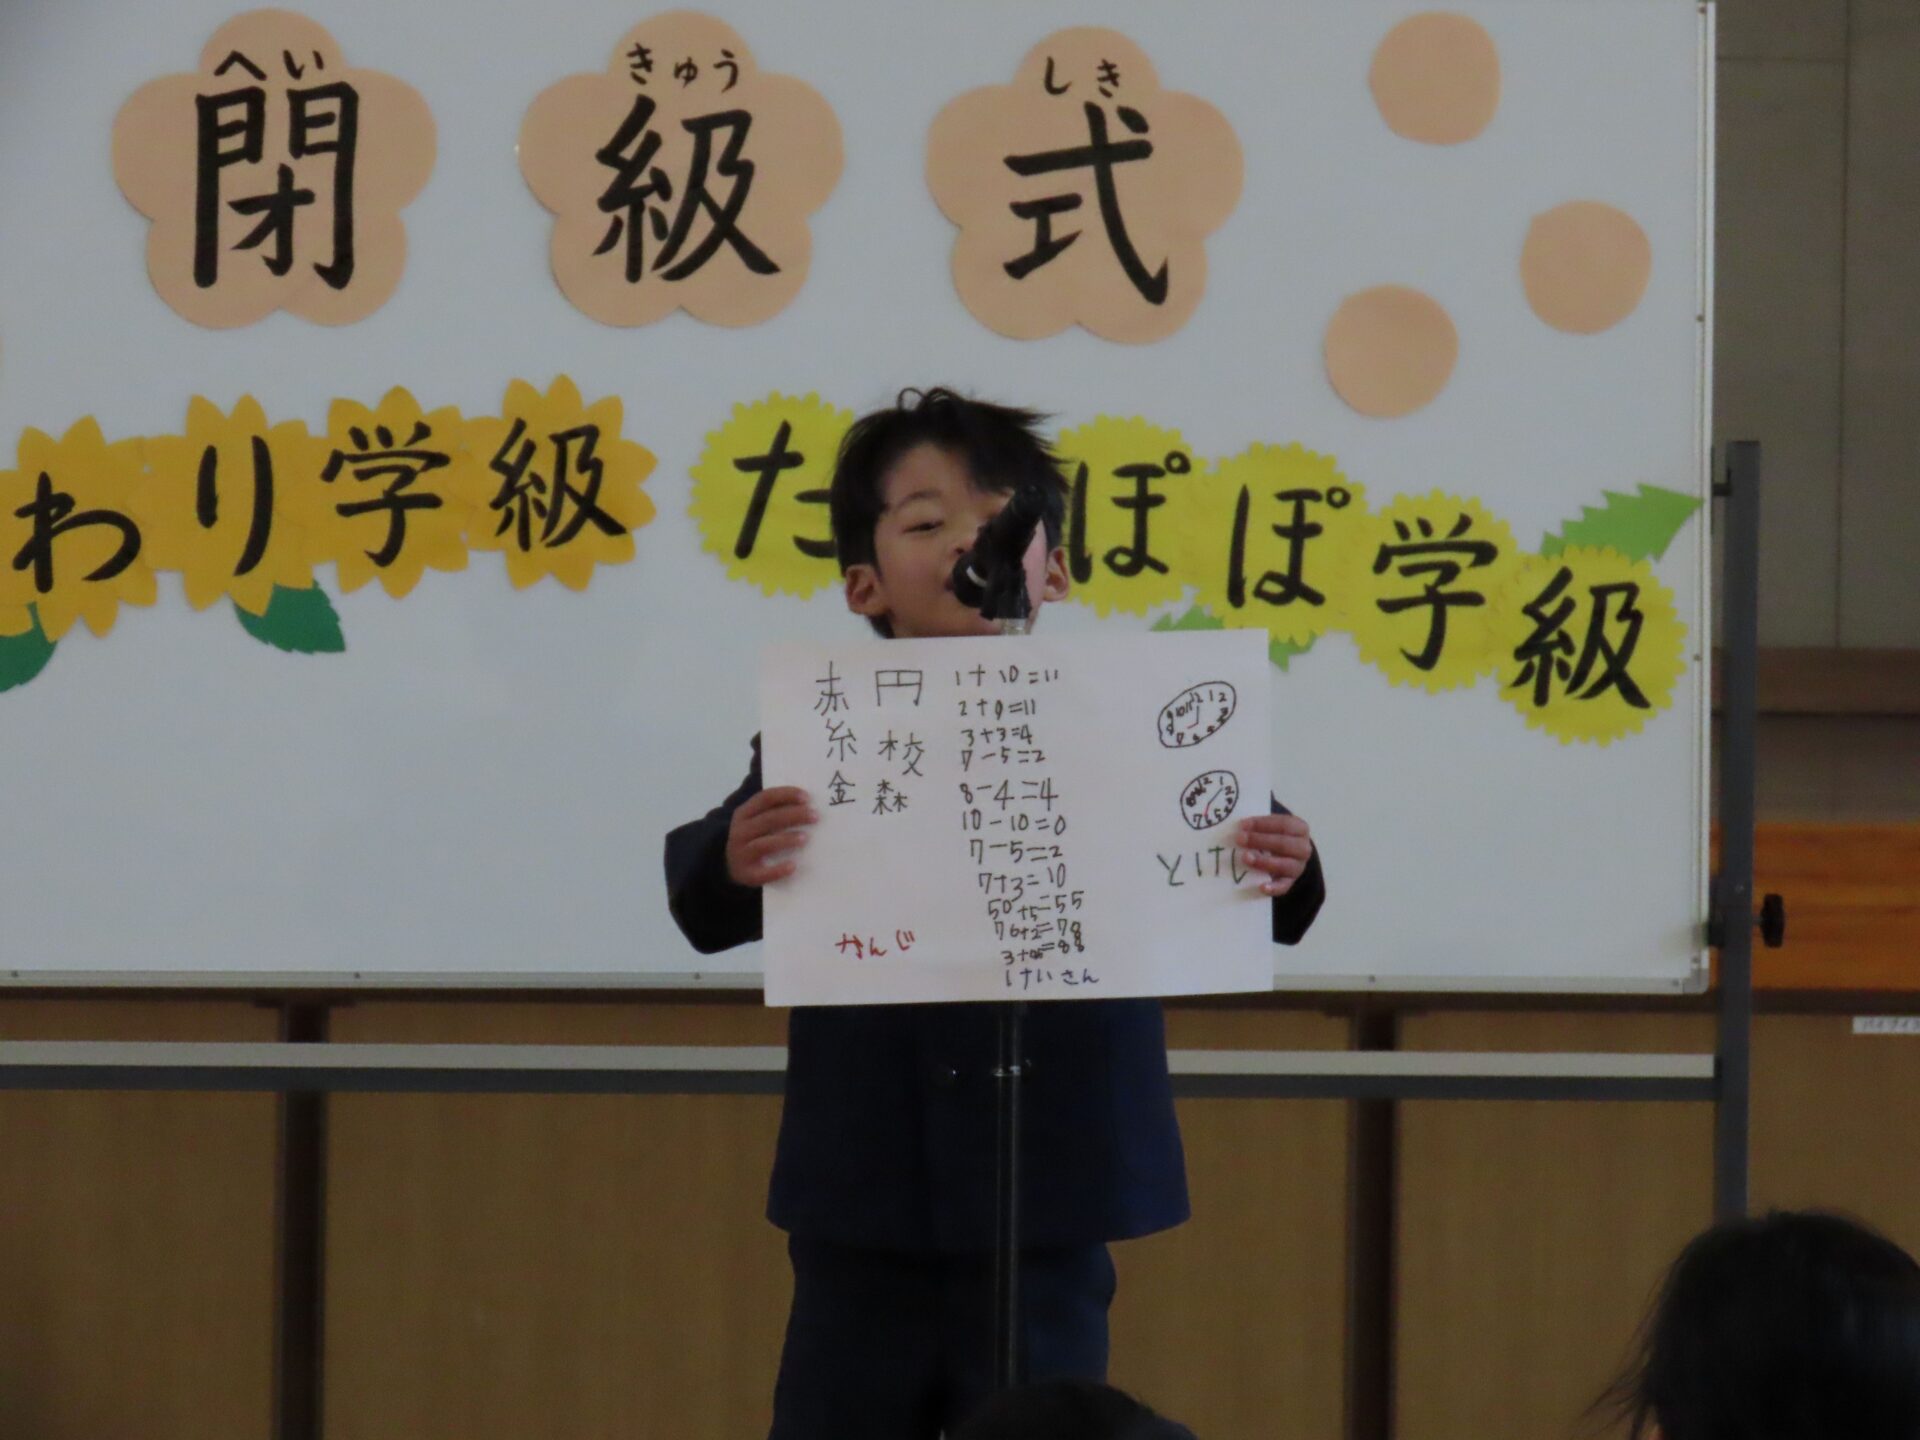 へい きゅう しき
閉級式
わり学級 た ぽぽ学級
赤 円
糸 校
金 森
かんじ
1+10=11
2+9=11
3+3=4
7-5=2
8-4=4
10-10=0
7-5=2
7+3=10
50+5=55
76+2=78
けいさん
とけい